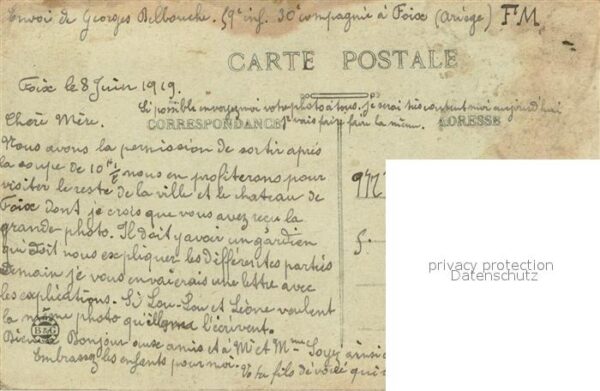 Envoi de Georges Belbouche. 59e inf. 30e compagnie à Foix (Ariège) FM
CARTE POSTALE
Foix le 8 Juin 1919.
Si possible envoyez moi votre photo à tous. je serai très content moi aujourd'hui
Chère Mère.
CORRESPONDANCE
je vais faire faire la mienne.
ADRESSE
Nous avons la permission de sortir après
la soupe de 10h 1/2 nous en profiterons pour
visiter le reste de la ville et le chateau de
Foix dont je crois que vous avez reçu la
grande photo. Il doit y avoir un gardien
qui doit nous expliquer les différentes parties
Demain je vous enverrais une lettre avec
les explications. Si Lou-Lou et Léone veulent
la même photo qu'ils l'écrivent.
B&G
Bonjour aux amis et à Mr et Mme
Embrassez les enfants pour moi. Votre fils dévoué qui
privacy protection
Datenschutz